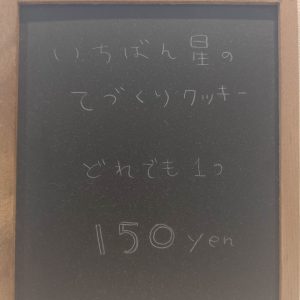 いちばん星の
てづくりクッキー
どれでも1つ
150yen